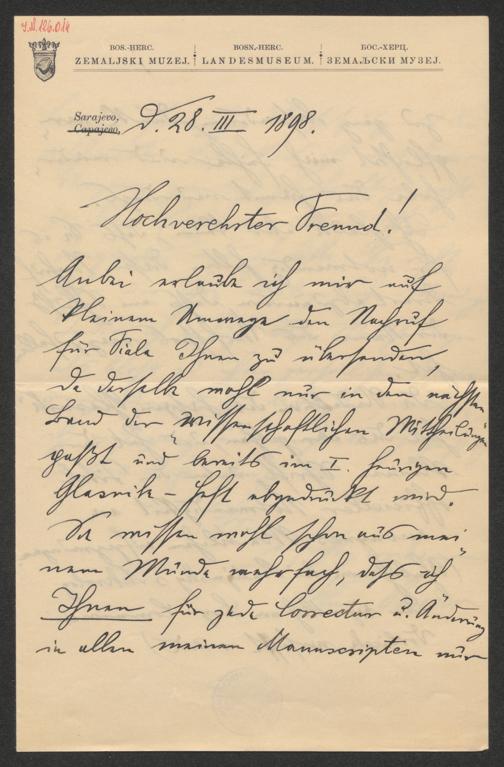 J.N. 126.014
BOS.-HERC. BOSN.-HERC. БОС.-ХЕРЦ.
ZEMALJSKI MUZEJ. LANDESMUSEUM. ЗЕМАЉСКИ МУЗЕЈ.
Sarajevo,
Сарајево, d. 28. III 1898.
Hochverehrter Freund!
Anbei erlaube ich mir auf
kleinem Umwege den Nachruf
für Fiala Ihnen zu übersenden,
da derselbe wohl nur in den nächsten
Band der „Wissenschaftlichen Mittheilungen
paßt und bereits im I. heurigen
Glasnik-Heft abgedruckt wird.
Sie wissen wohl schon aus mei
nem Munde mehrfach, dass ich
Ihnen für jede Correctur u. Änderung
in allen meinen Manuscripten nur